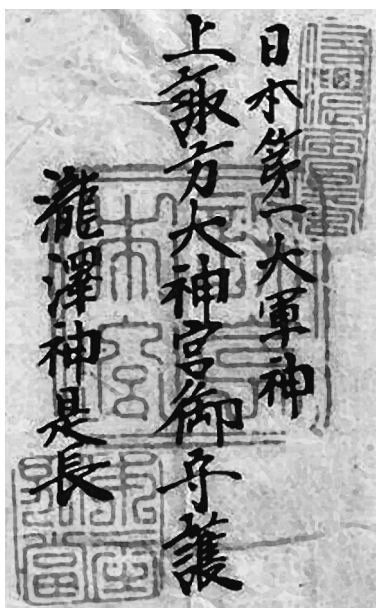 日本第一大軍神
上諏方大神宮御守護
瀧澤神是長